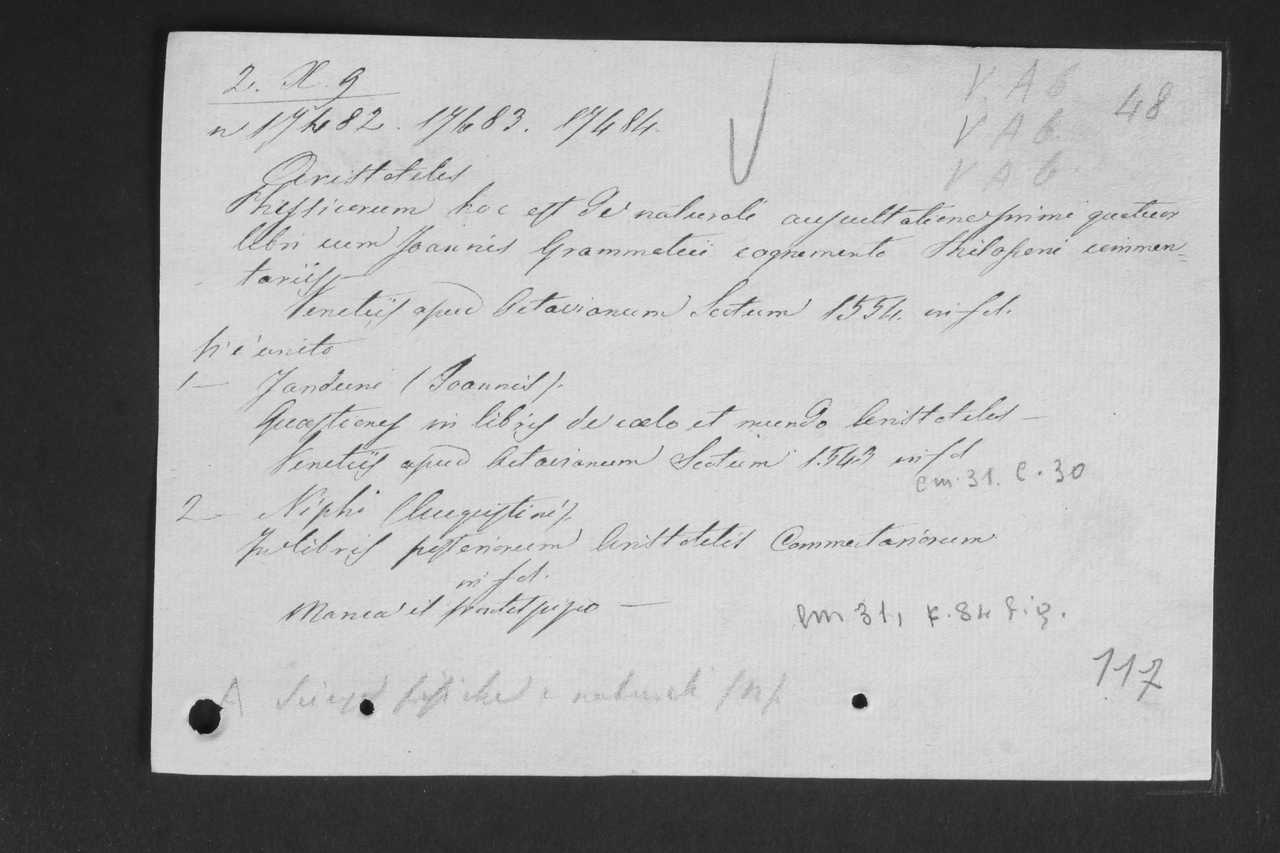 2. X. 9
V A 6
48
n 17482. 17483. 17484.
V A 6
V A 6
Aristoteles
Phissicorum hoc est de naturali auscultatione primi quatuor
libri cum Joannis Grammatici cognomento Philoponi commen=
tariis
Venetiis apud Octavianum Scotum 1554. in fol.
Vi è unito
1— Janduni (Joannis)
Quæstiones in libris de cœlo et mundo Aristoteles—
Venetiis apud Octavianum Scotum 1543 in fol
cm. 31. C. 30
2— Niphi (Augustini)
In libris posteriorum Aristotelis Commentariorum
in fol.
Manca il frontespizio —
cm 31, c. 84 fig.
117
A Scienze fisiche e naturali